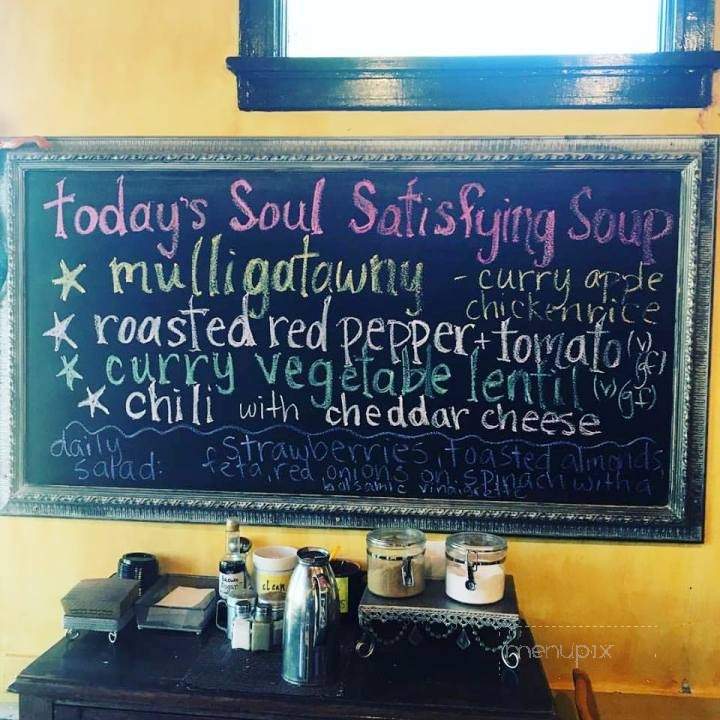 today's Soul Satisfying Soup
* mulligatawny - curry apple
chicken rice
* roasted red pepper + tomato (v)
(gf)
* curry vegetable lentil (v) (gf)
* chili with cheddar cheese
daily salad: strawberries, toasted almonds,
feta, red onions on spinach with a
balsamic vinaigrette
clean
menupix